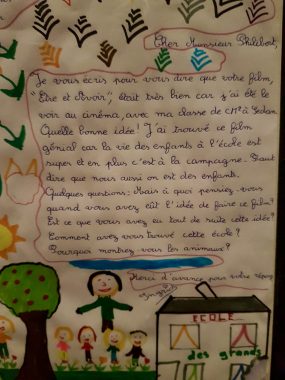 Cher Monsieur Philibert,
Je vous écris pour vous dire que votre film,
"Être et Avoir", était très bien car j'ai été le
voir au cinéma, avec ma classe de CM² à Sedan.
Quelle bonne idée! J'ai trouvé ce film
génial car la vie des enfants à l'école est
super et en plus c'est à la campagne. Faut
dire que nous aussi on est des enfants.
Quelques questions: Mais à quoi pensiez-vous
quand vous avez eût l'idée de faire ce film?
Est ce que vous avez eu tout de suite cette idée?
Comment avez vous trouvé cette école?
Pourquoi montrez vous les animaux?
Merci d'avance pour votre
ECOLE
des grands